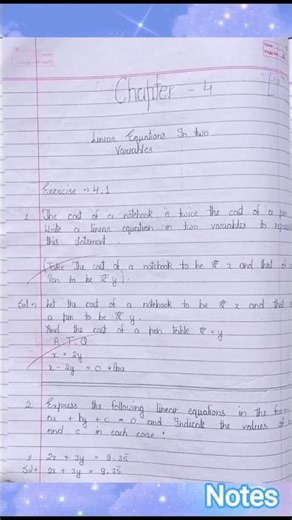 Chapter - 4
Linear Equations In two
Variables
Exercise → 4.1
1. The cost of a notebook is twice the cost of a pen
Write a linear equation in two variables to
this statement.
(Take The cost of a notebook to be ₹ x and that of
Pen to be ₹ y).
Solⁿ → Let the cost of a notebook to be ₹ x and that
a pen to be ₹ y.
And the cost of a pen ₹ = y
A. T. Q
x = 2y
x - 2y = 0 Ans
2. Express the following linear equations in the form
ax + by + c = 0 and Indicate the values of
and c in each case.
2x + 3y = 9.35
Solⁿ 2x + 3y = 9.35
Notes